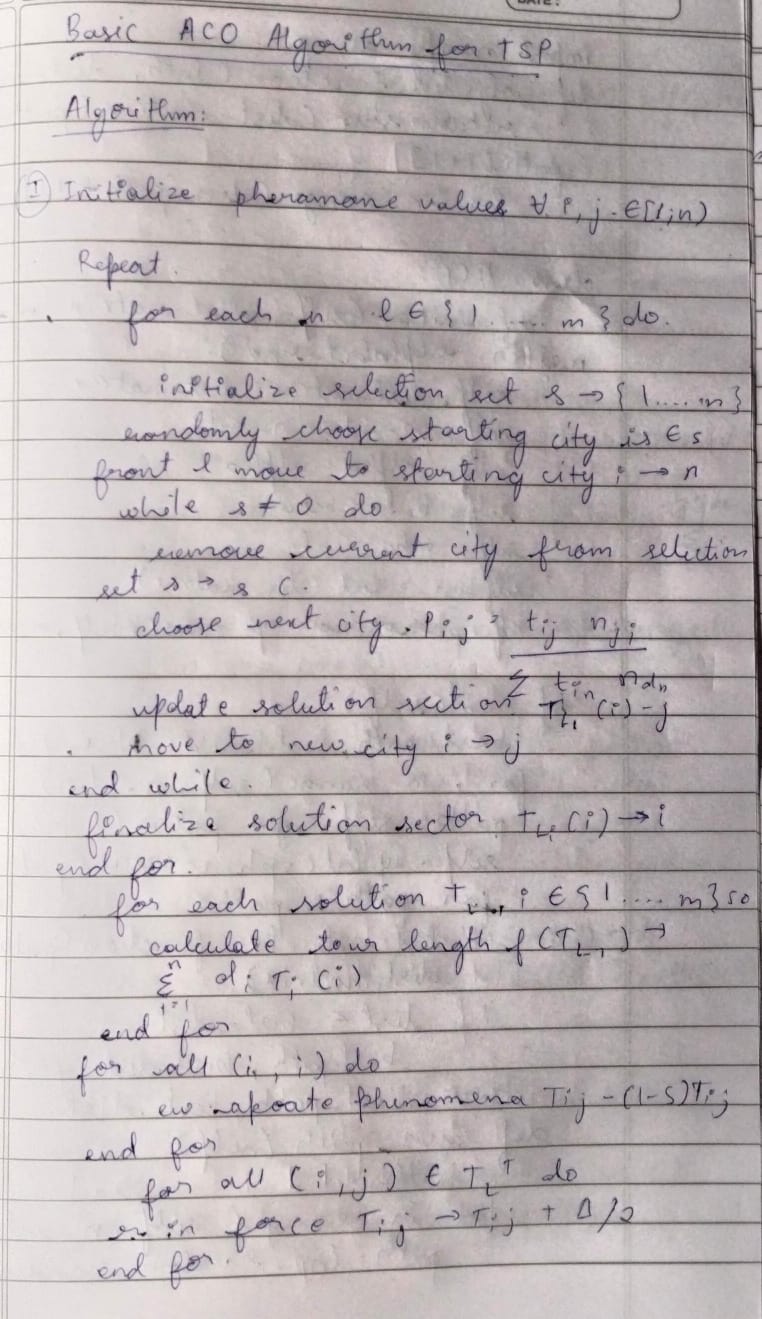 DATE:
Basic ACO Algorithm for TSP
Algorithm:
I Initialize pheramone values ∀ i, j. ∈[1;n)
Repeat.
for each l ∈ { 1 ..... m } do.
initialize selection set s → { 1..... m}
randomly choose starting city is ∈ s
front l move to starting city i → n
while s ≠ 0 do
remove current city from selection
set s → s c.
choose next city . Pij = tij nji
Σ tin ndn
update solution section (i) - j
move to new city i → j
end while.
finalize solution sector TLi (i) → i
end for.
for each solution i ∈ { 1 .... m} so
calculate tour length f (TL1) →
n
Σ di Ti (i)
i=1
end for
for all (i, i) do
phenomena Tij - (1-S)Tij
end for
for all (i, j) ∈ TLT do
in force Tij → Tij + Δ/2
end for.